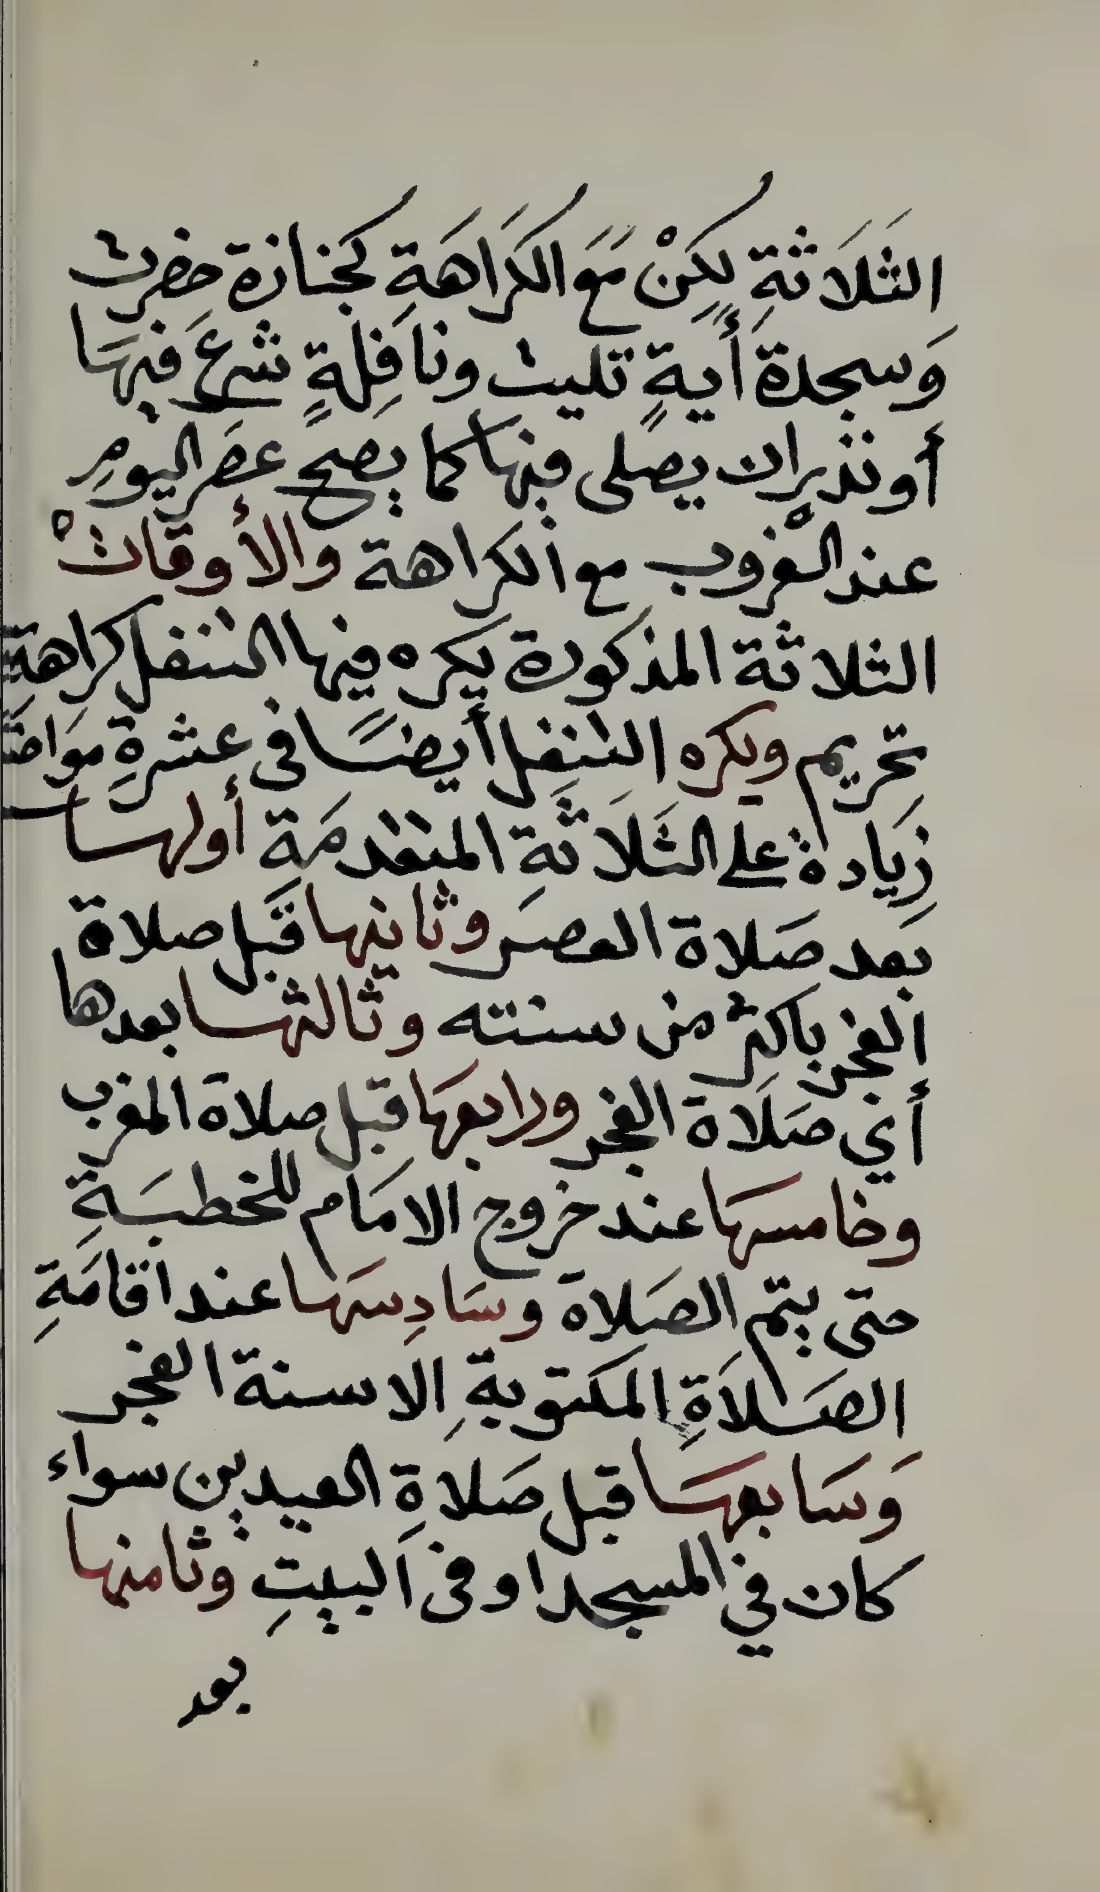 الثَلَاثَةِ لكِنْ مَعَ الكَرَاهَةِ كجنازة حضرت
وَسجدة أَيةٍ تليت ونافِلةٍ شرعَ فيهَا
أو نذر ان يصلى فيها كما يصح عصَر اليومِ
عند الغروب مع الكراهة والأوقاتْ
الثلاثة المذكورة يكره فيها التنفل كراهة
تحريم ويكره التنفِل أيضًا فى عشرةِ مواضَ
زِيادة على الثَلَاثَة المتقدمَة أولها
بَعد صَلاة العصَر وثانيها قَبل صلاة
الفجر باكثر من سنته وثالثها بعدها
أي صَلَاة الفجر ورابعهَا قبل صلاة المغرب
وخامسهَا عند خروج الامَام للخطبَةِ
حتى يتم الصَلاة وسَادِسهَا عند اقامَةِ
الصَلَاةِ المكتوبةِ الا سنة الفجر
وَسَابعهَا قبل صَلاةِ العيدين سواء
كان في المسجد او فى البيتِ وثامنها
بعد